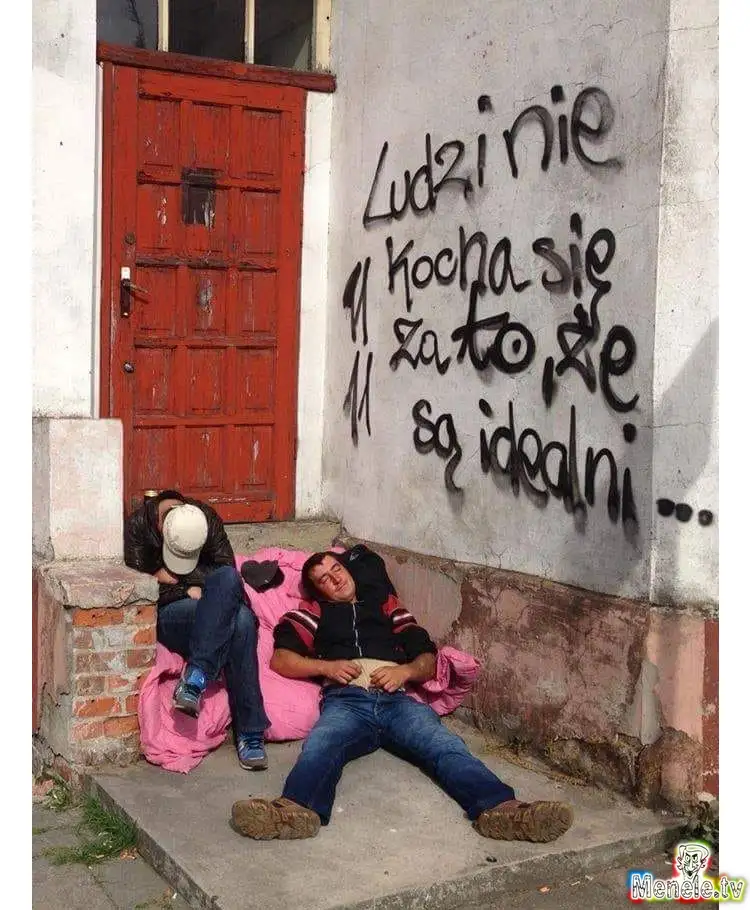 Ludzi nie
" kocha się
" za to, że
są idealni ...
Menele.tv